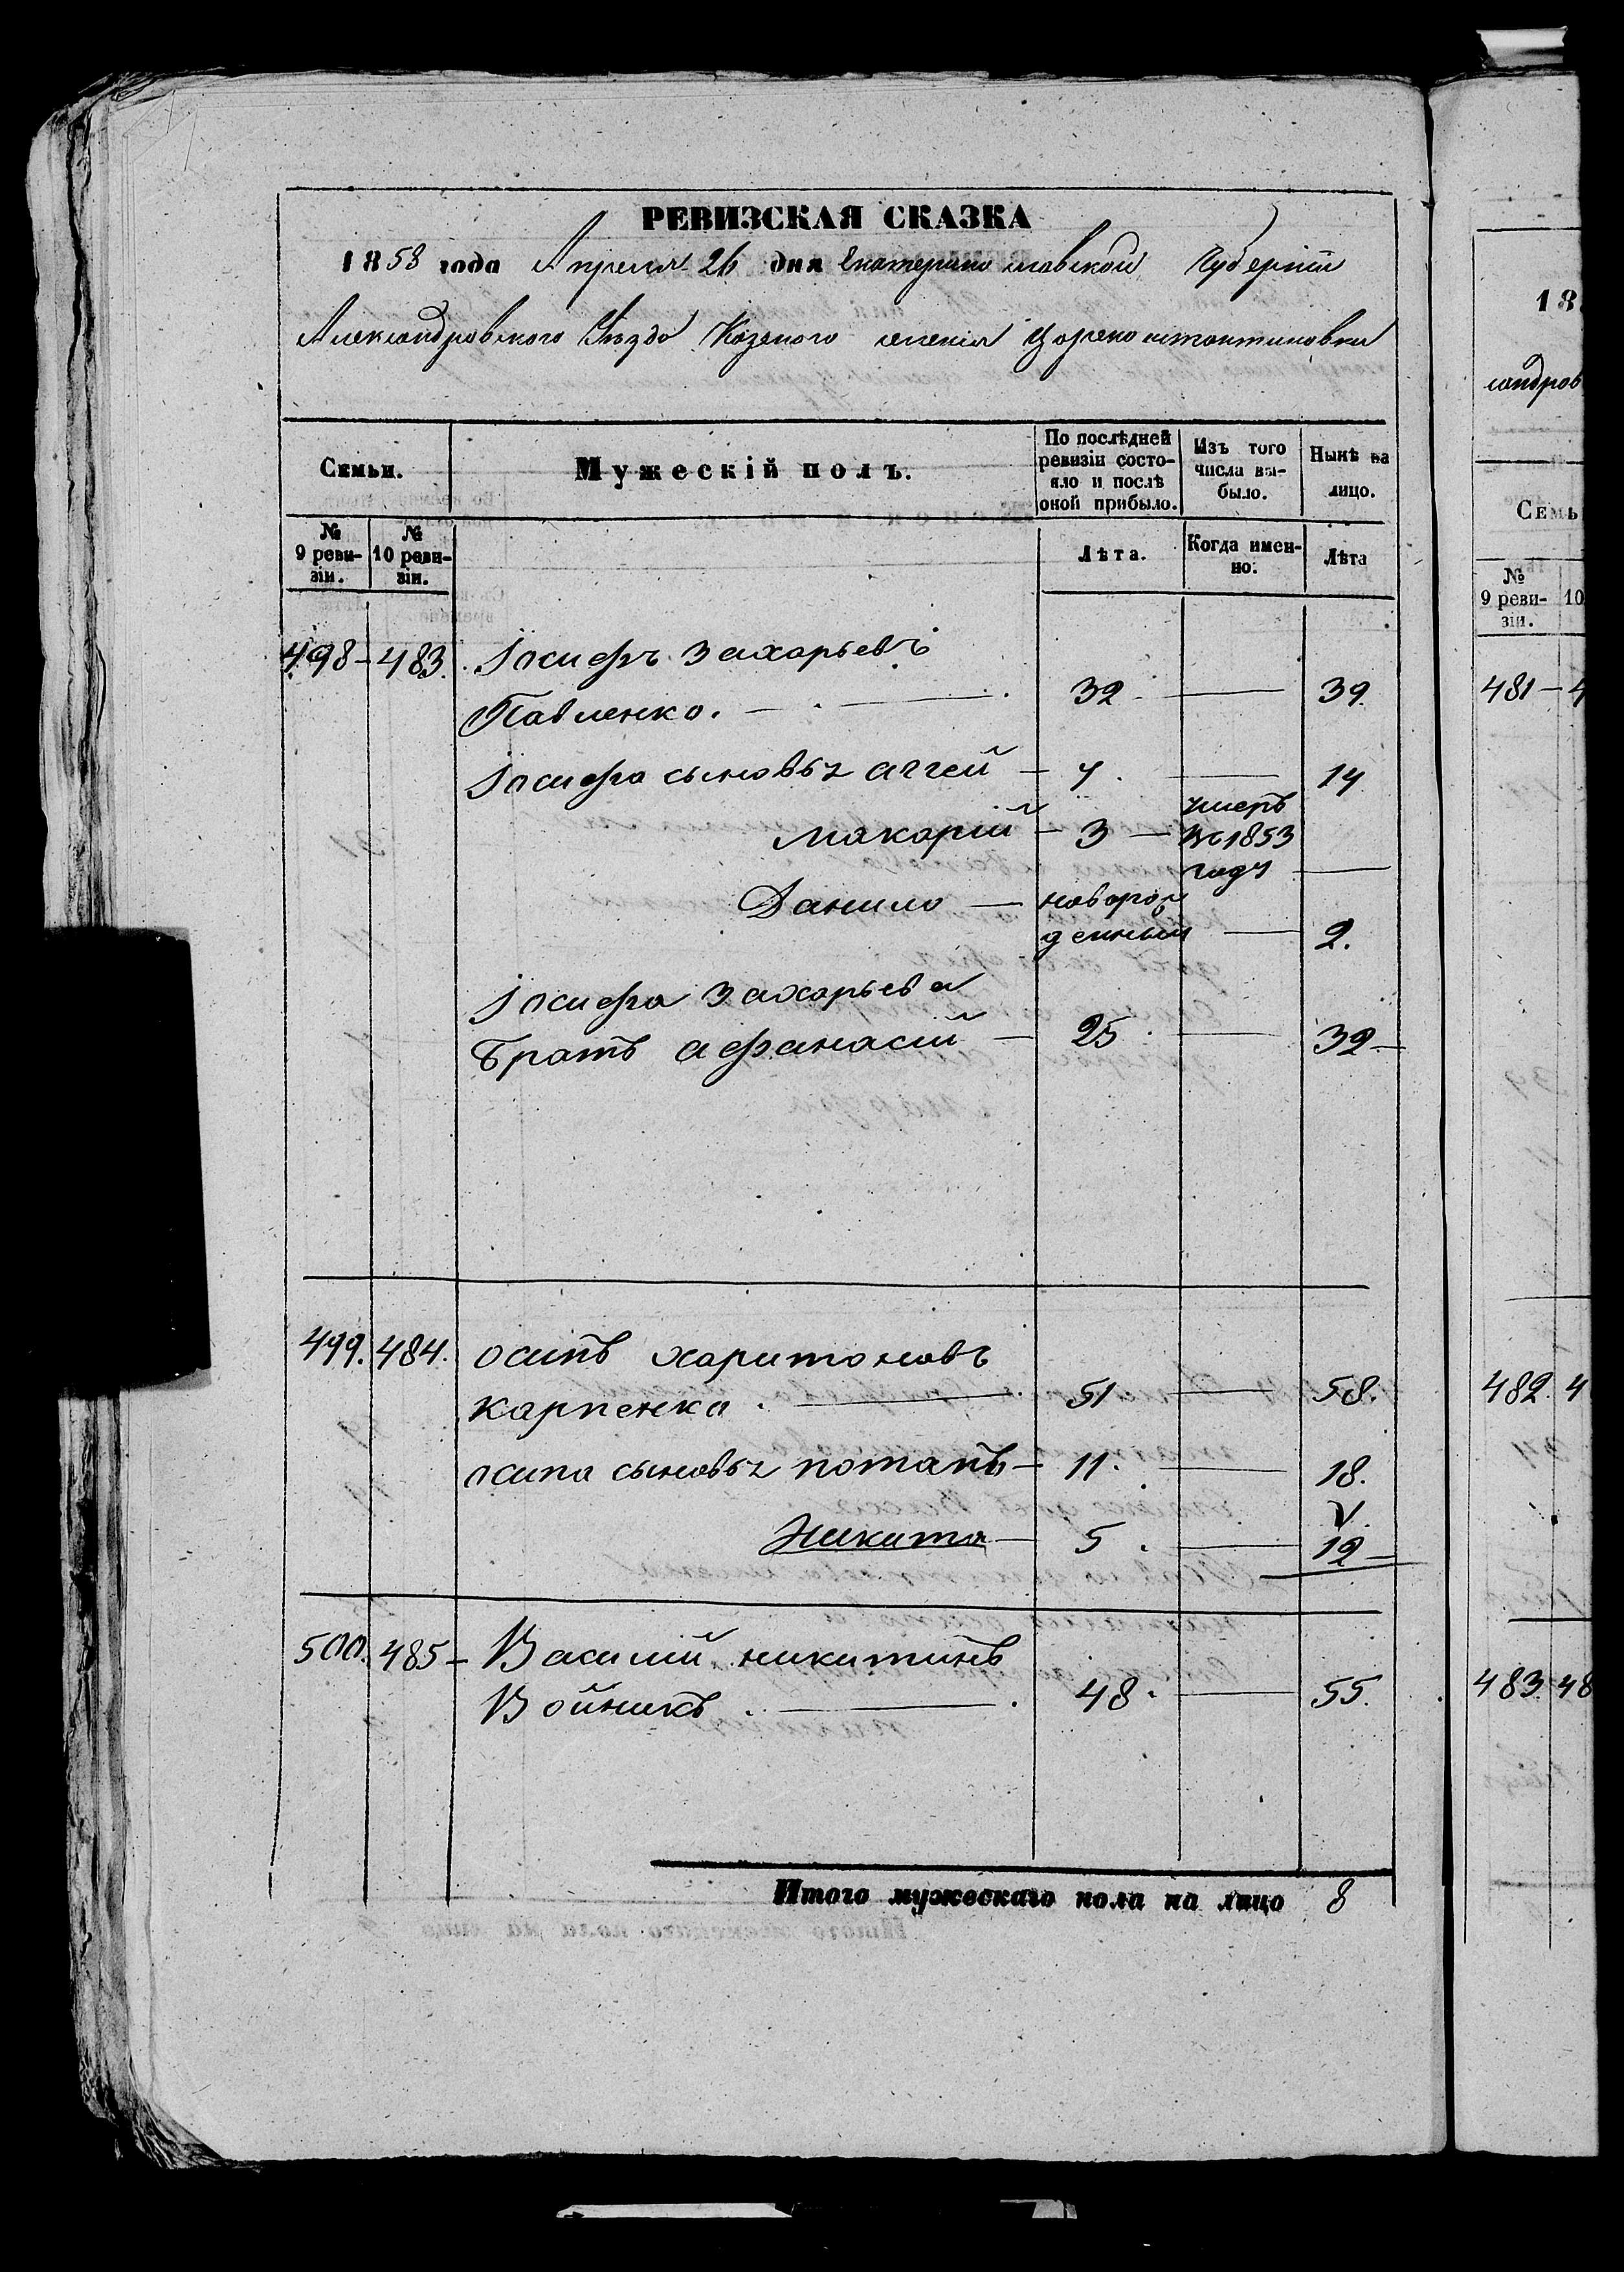 РЕВИЗСКАЯ СКАЗКА
1858 года Апреля 26 дня Екатеринославской Губерніи
Александровского Уѣзда Казеного селенія Цареконстантиновки
Семьи. Мужескій полъ. По послѣдней ревизіи состояло и послѣ оной прибыло. Изъ того числа выбыло. Нынѣ на лицо.
№ 9 ревизіи. № 10 ревизіи. Лѣта. Когда именно. Лѣта
498 - 483. Іосифъ Захарьевъ
Павленко. — 32 — 39.
Іосифа сыновья Аггей — 7. — 14
Макарій — 3 — умеръ въ 1853 году —
Данило — новорожденный — 2.
Іосифа Захарьева
Братъ Афанасій — 25 — 32 —
499. 484. Осипъ Харитоновъ
Карпенко. — 51 — 58.
Осипа сыновья Потапъ — 11. — 18.
Никита — 5. — 12 —
500. 485 — Василій Никитинъ
Войникъ. — 48. — 55.
Итого мужескаго пола на лицо 8
18
сандров
Семь
№ 9 ревизіи. 10
481 — 4
482. 4
483 48